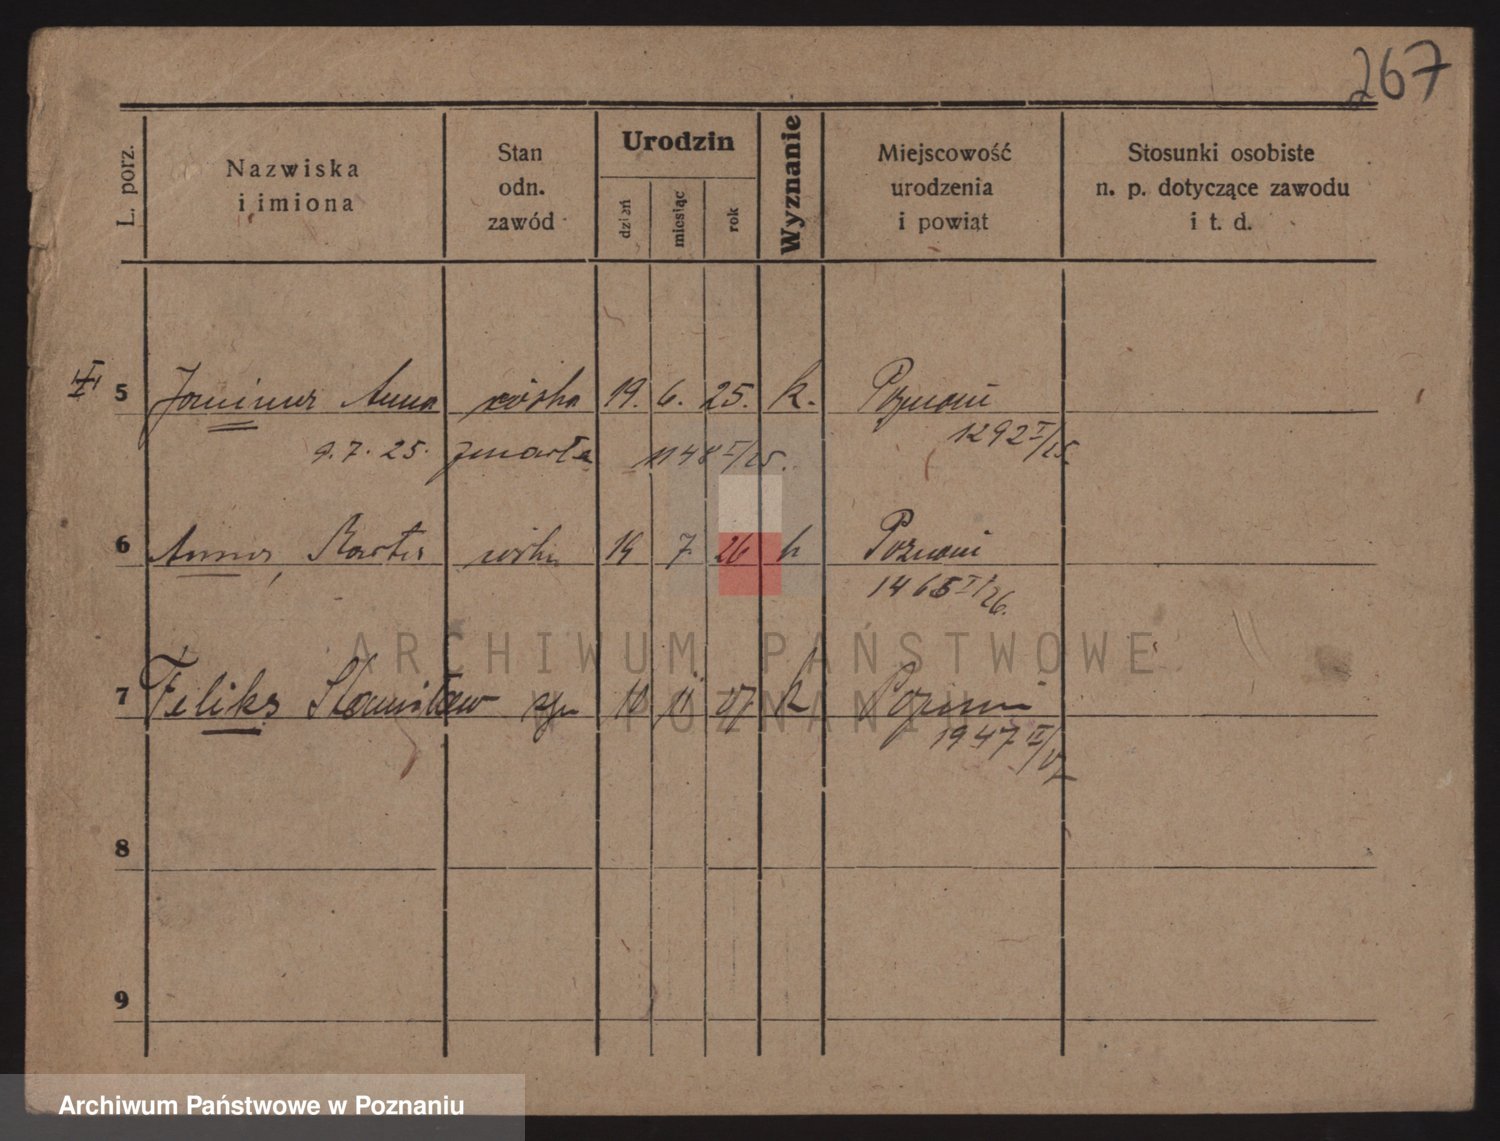 267
L. porz.
Nazwiska
i imiona
Stan
odn.
zawód
Urodzin
dzień
miesiąc
rok
Wyznanie
Miejscowość
urodzenia
i powiat
Stosunki osobiste
n. p. dotyczące zawodu
i t. d.
5 Anna córka 19. 6. 25. k. Poznań
1292 I/25.
9. 7. 25. zmarła 1148 I/25.
6 córka 19 7 26 k Poznań
1465 I/26.
7 Feliks Stanisław syn 10 11 27 k Poznań
1947 II/27
8
9
ARCHIWUM PAŃSTWOWE
W POZNANIU
Archiwum Państwowe w Poznaniu